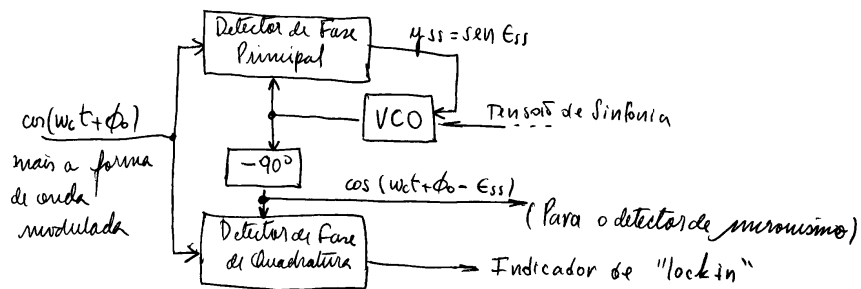 Detector de Fase
Principal
y ss = sen Ess
cos(wct + ϕo)
mais a forma
de onda
modulada
VCO
Tensão de Sintonia
-90°
cos (wct + ϕo - Ess)
(Para o detector de sincronismo)
Detector de Fase
de Quadratura
Indicador de "lock in"